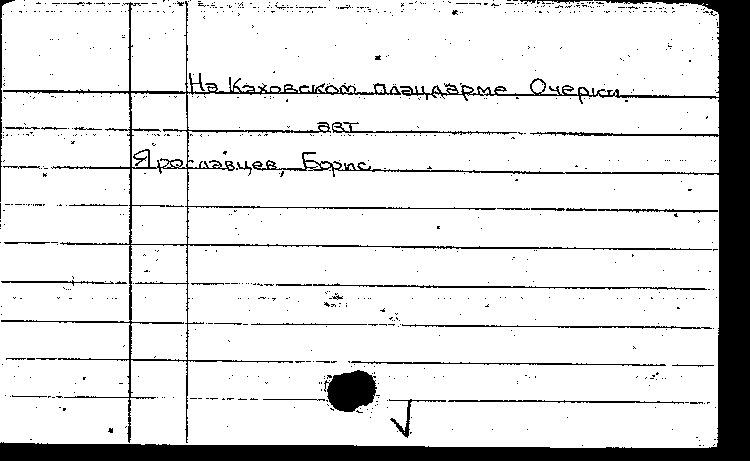 На Каховском плацдарме. Очерки.
авт
Ярославцев, Борис